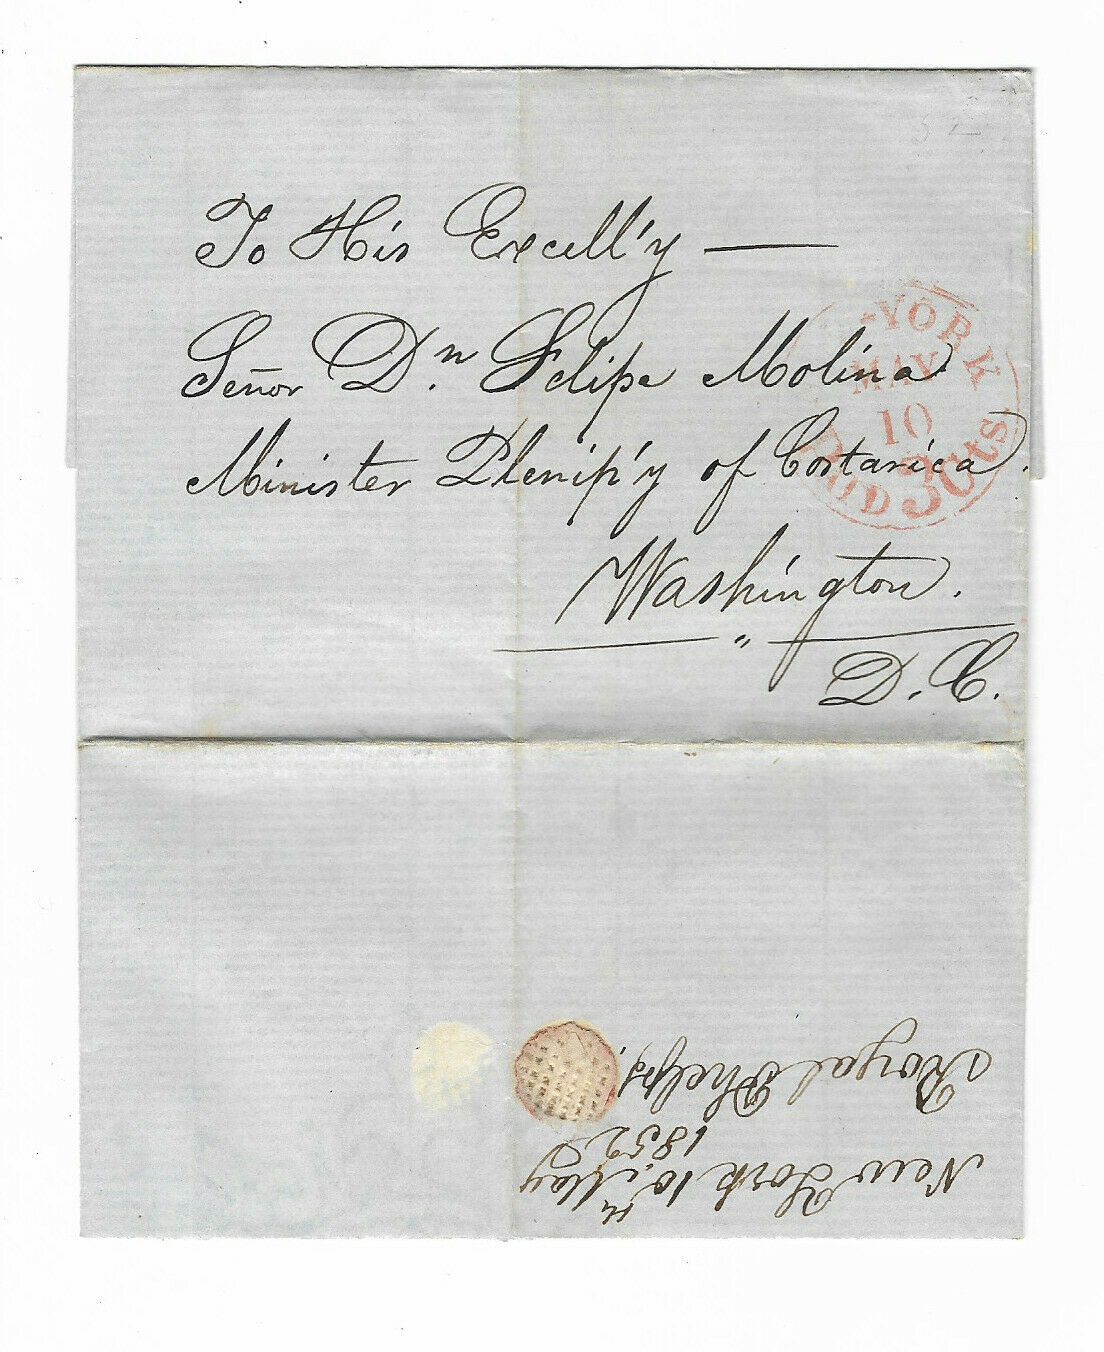 To His Excell'y —
Señor Dn. Felipe Molina
Minister Plenip'y of Costarica.
Washington.
"
D. C.
-YORK
MAY
10
PAID 3 Cts
New York 10th May
1852
Royal Phelps.